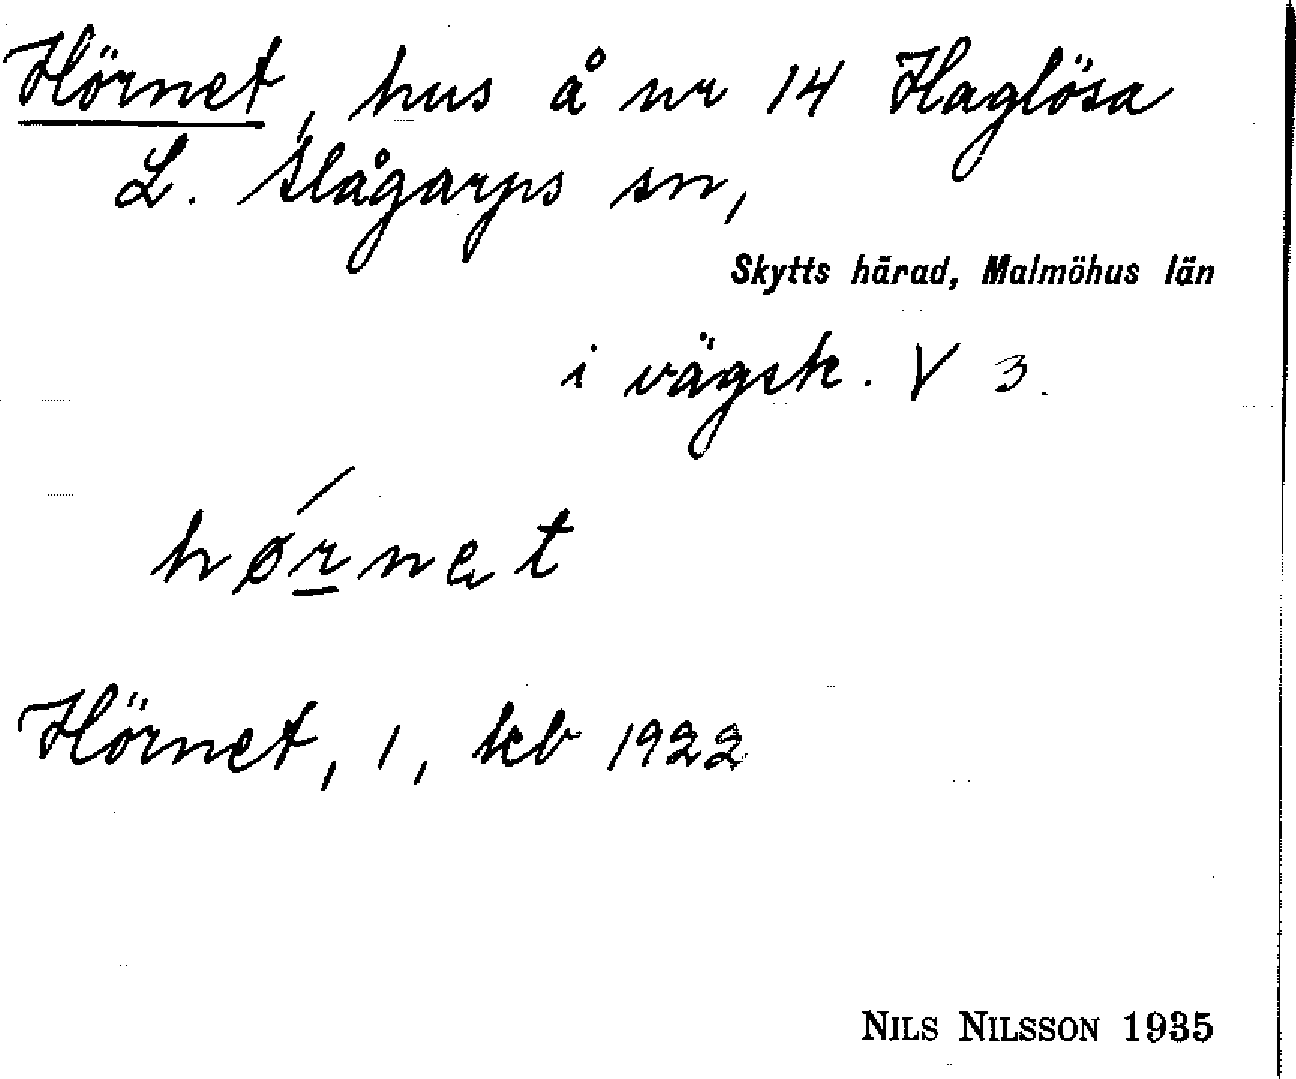 Hörnet, hus å nr 14 Haglösa
L. Slågarps sn,
Skytts härad, Malmöhus län
i vägsk. V 3.
hørnet
Hörnet, 1, kb 1922
NILS NILSSON 1935